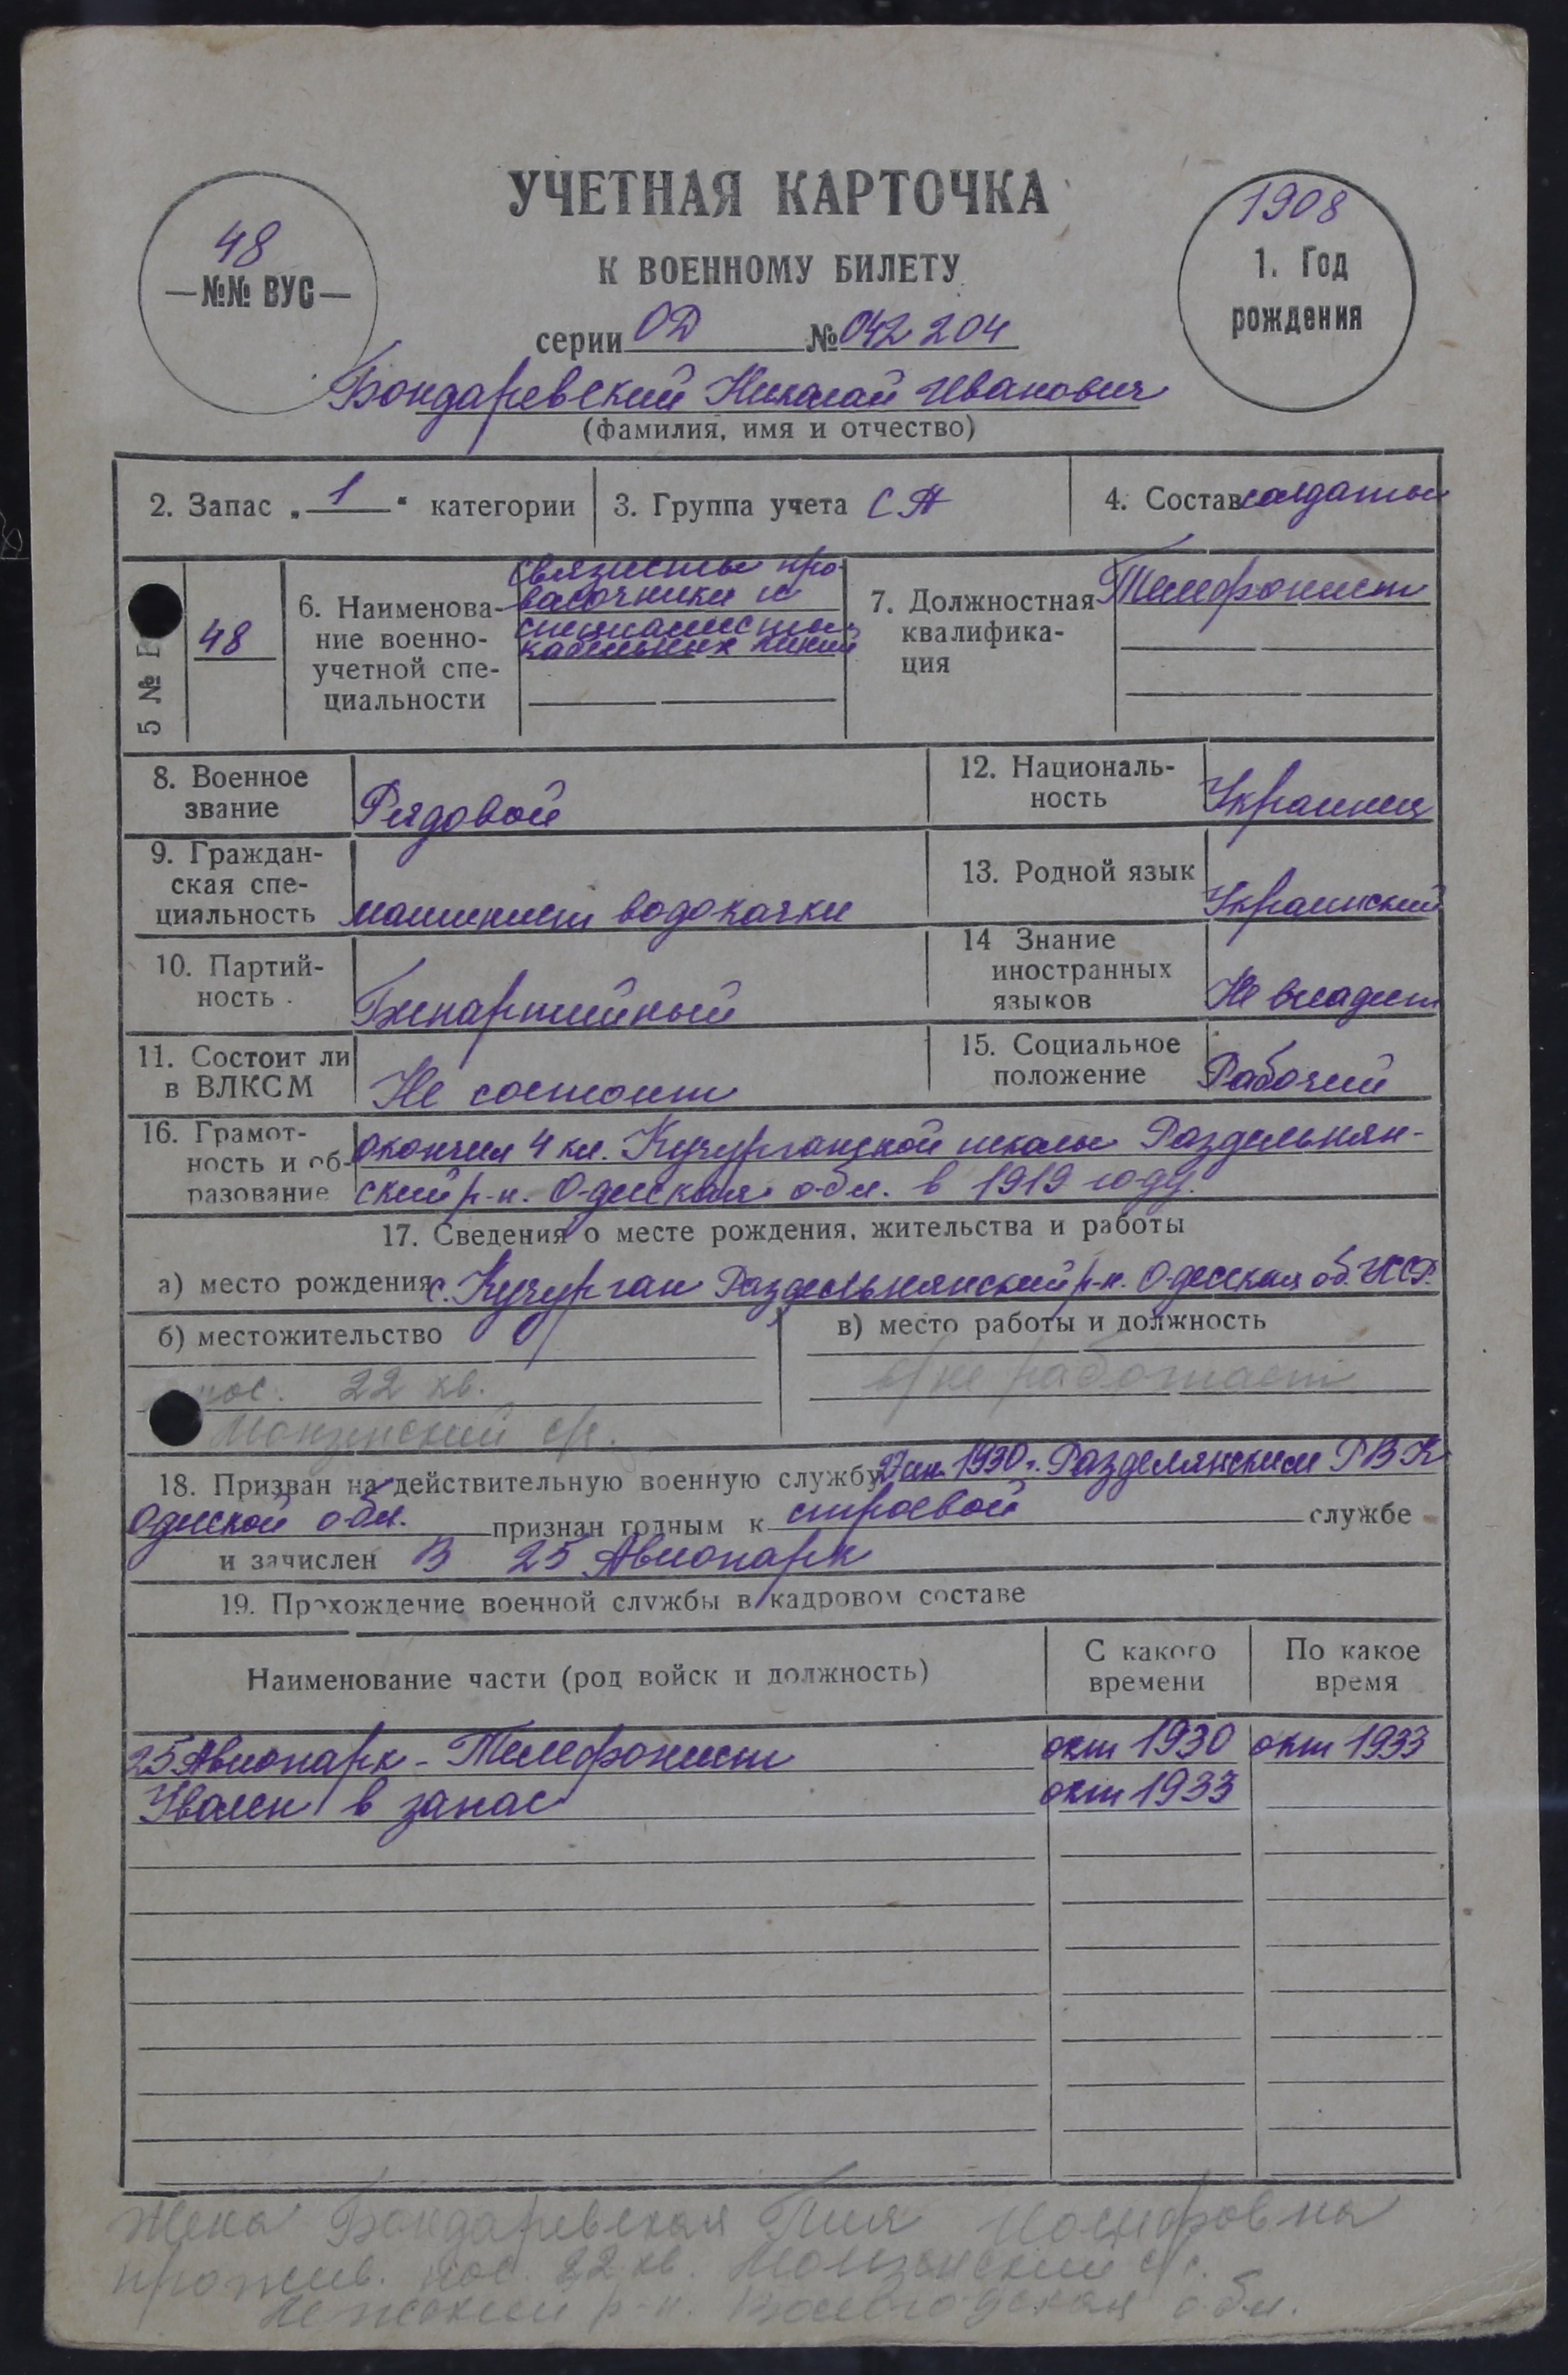 УЧЕТНАЯ КАРТОЧКА
К ВОЕННОМУ БИЛЕТУ
48
—№№ ВУС—
1908
1. Год
рождения
серии ОД № 042 204
Бондаревский Николай Иванович
(фамилия, имя и отчество)
2. Запас „ 1 “ категории
3. Группа учета СА
4. Состав солдаты
5 №
48
6. Наименова-
ние военно-
учетной спе-
циальности
связисты про-
водочники и
специалисты
кабельных линий
7. Должностная
квалифика-
ция
Телефонист
8. Военное
звание
Рядовой
12. Националь-
ность
Украинец
9. Граждан-
ская спе-
циальность
машинист водокачки
13. Родной язык
Украинский
10. Партий-
ность
Беспартийный
14 Знание
иностранных
языков
Не владеет
11. Состоит ли
в ВЛКСМ
Не состоит
15. Социальное
положение
Рабочий
16. Грамот-
ность и об-
разование
окончил 4 кл. Кучурганской школы Раздельнян-
ский р-н. Одесская обл. в 1919 году.
17. Сведения о месте рождения, жительства и работы
а) место рождения с. Кучурган Раздельнянский р-н. Одесская об.
б) местожительство
пос. 22 кв.
Монзенский с/с.
в) место работы и должность
не работает
18. Призван на действительную военную службу 1930 г. Разделянским РВК
Одесской обл. признан годным к строевой службе
и зачислен В 25 Авиопарк
19. Прохождение военной службы в кадровом составе
Наименование части (род войск и должность)
С какого
времени
По какое
время
25 Авиопарк - Телефонист окт 1930 окт 1933
Уволен в запас окт 1933
Жена Бондаревская Иосифовна
прожив. пос. 22 кв. Монзенский с/с.
р-н. Вологодская обл.